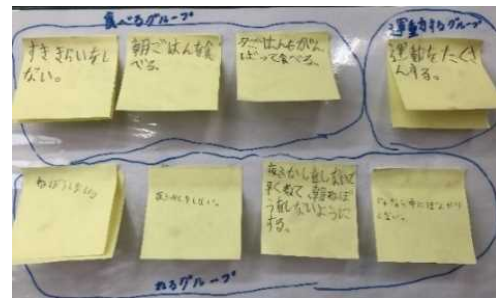 食べるグループ
運動するグループ
すききらいをし
ない。
朝ごはんを食
べる。
夕ごはんもがん
ばって食べる。
運動をたくさ
んする。
ねぼうしない。
夜ふかしをしない。
夜ふかしをしないで
早くねて、朝ねぼ
うをしないように
する。
しない。
ねるグループ